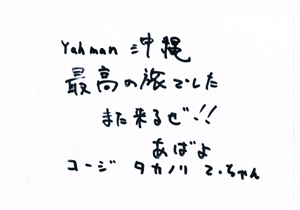 Yahman 沖縄
最高の旅でした
また来るぜ!!
あばよ
コージ タカノリ てっちゃん